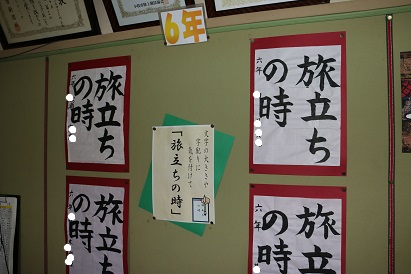 6年
旅立ち
の時
六年
旅立ち
の時
六年
文字の大きさや
字配りに
気を付けて
「旅立ちの時」
旅立ち
の時
六年
旅立ち
の時
六年